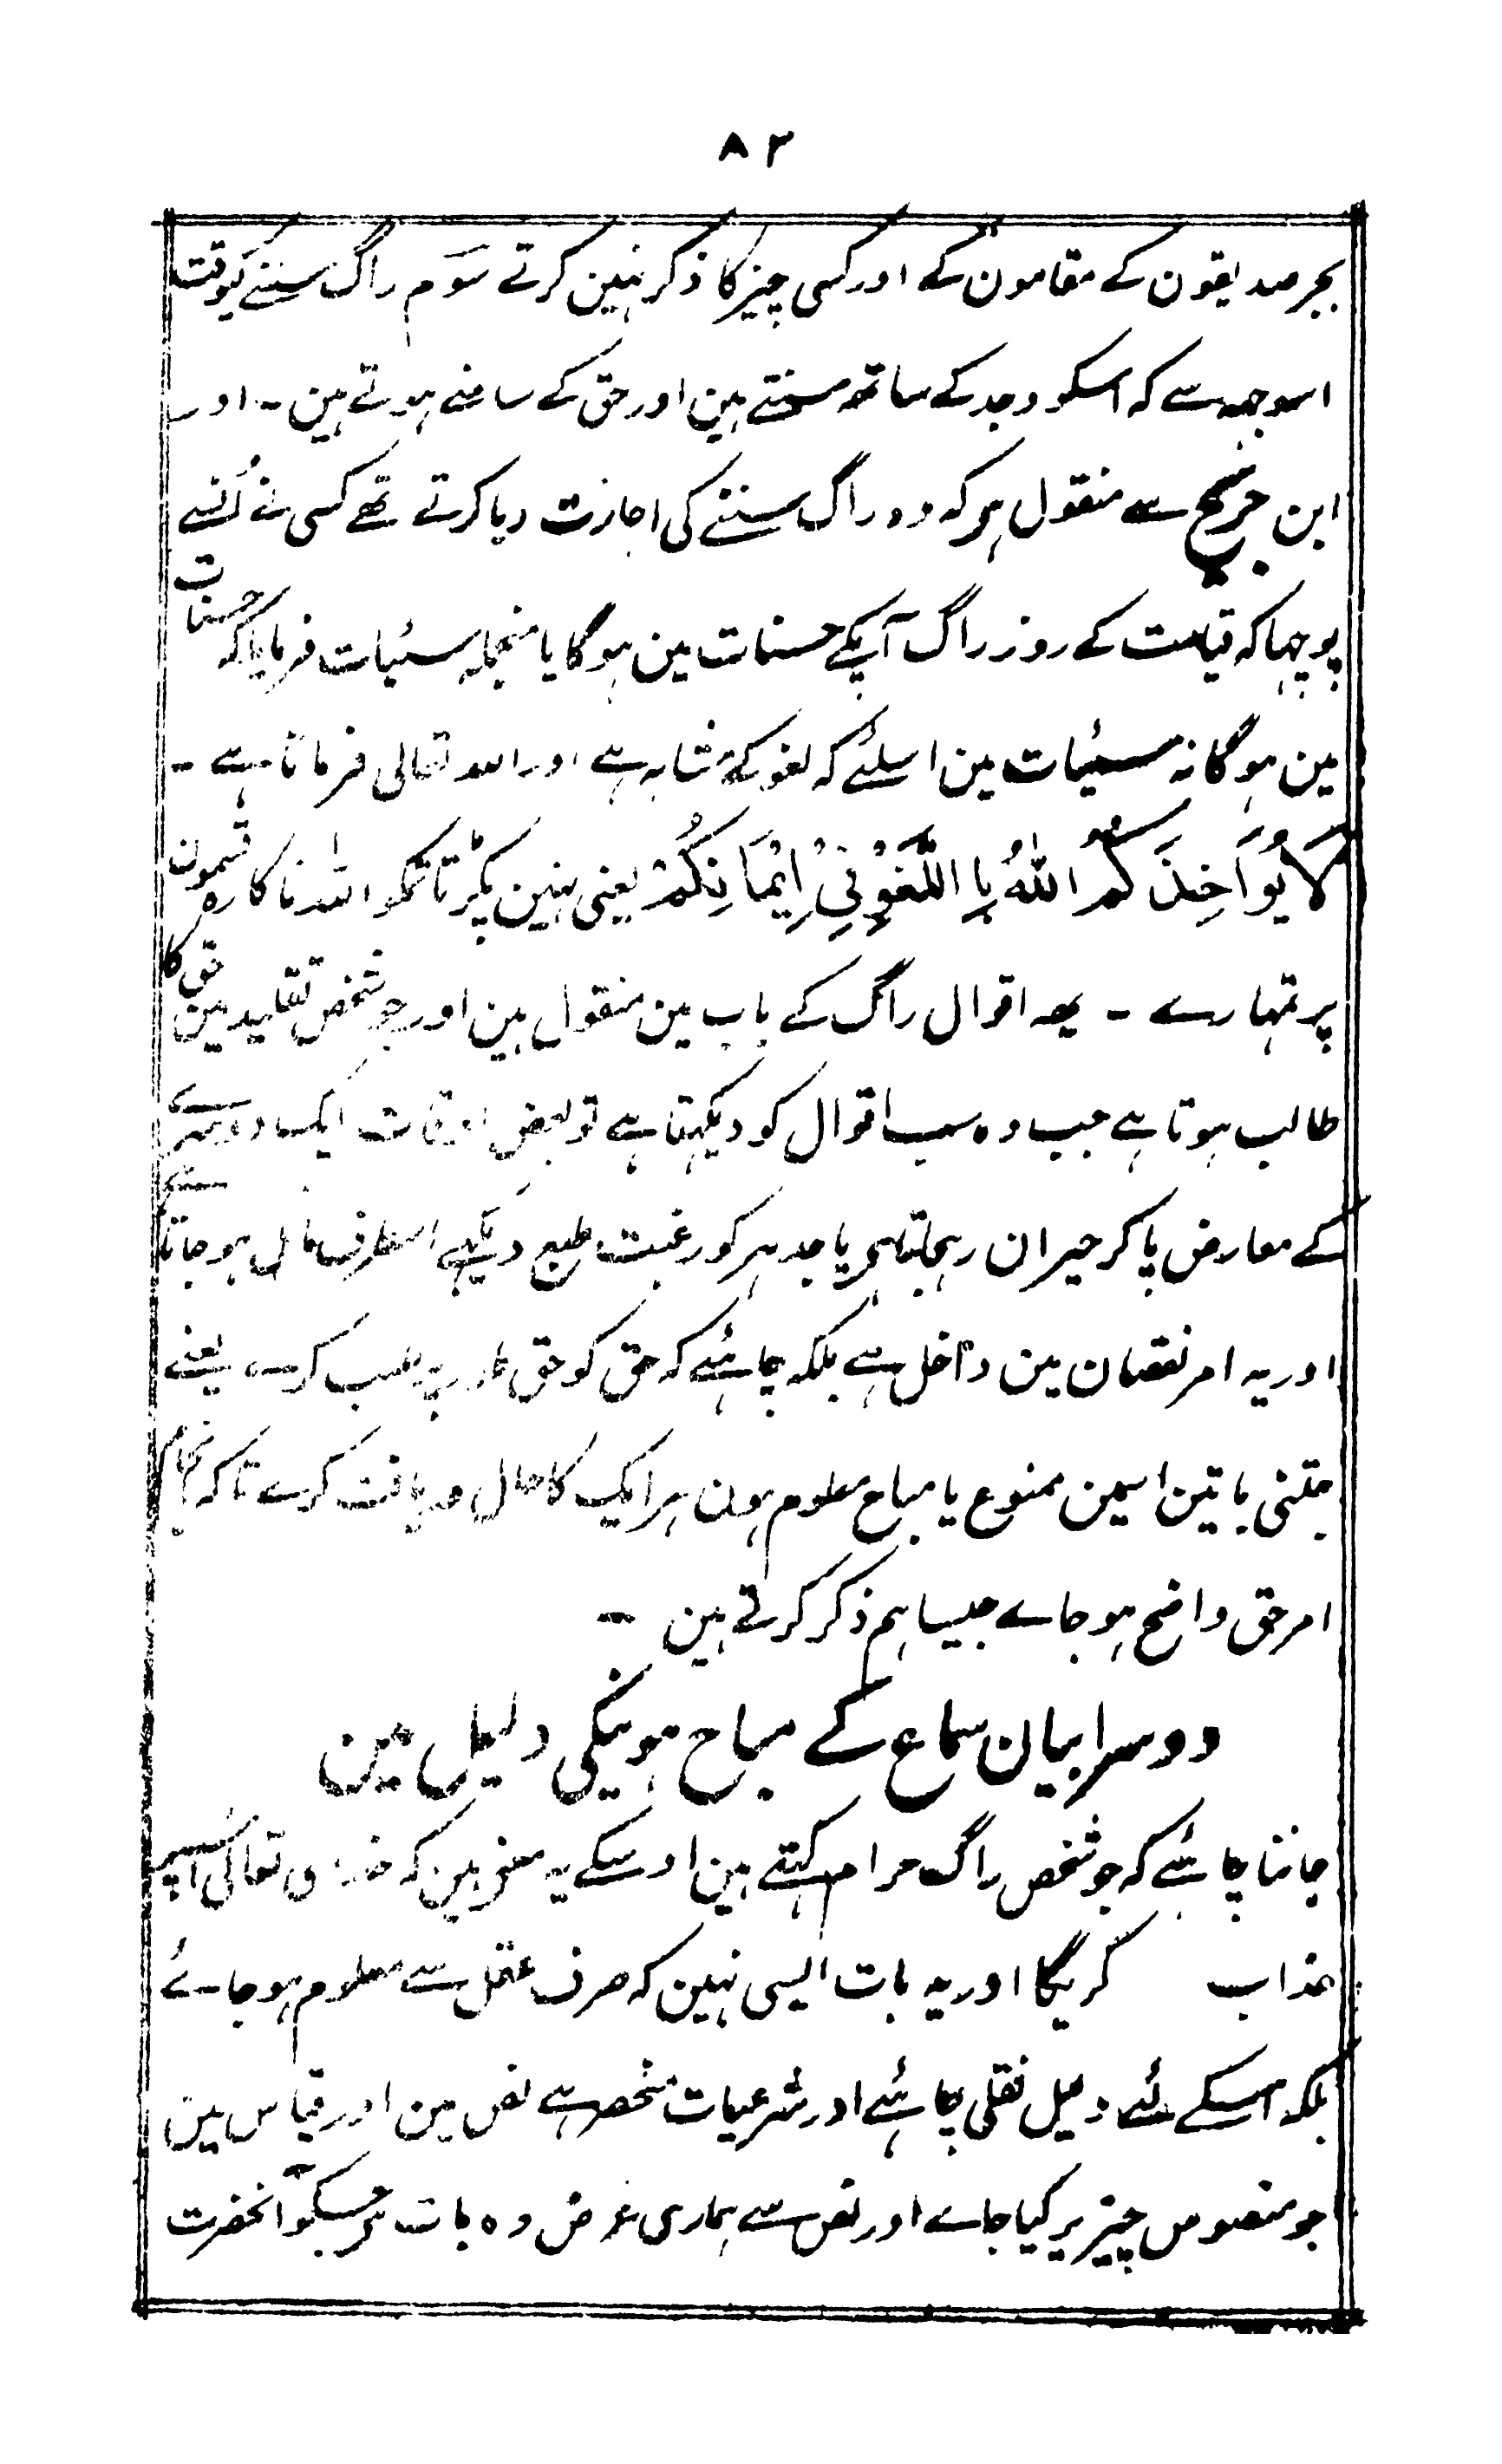 ۸۳
بجز صدیقون کے مقامون کے اور کسی چیز کا ذکر نہین کرتے سوم راگ سننے کیوقت
اسوجہہ سے کہ اسکو وجد کے ساتھ سنتے ہین اور حق کے سامنے ہوتے ہین - اور
ابن جریج سے منقول ہر کہ وہ راگ سننے کی اجازت دیا کرتے تھے کسی نے اُنسے
پوچہا کہ قیامت کے روز راگ آپکے حسنات مین ہوگا یا منجملہ سیئات فرمایا کہ حسنات
مین ہوگا نہ سیئات مین اسلئے کہ لغو کے مشابہ ہے اور اللہ تعالی فرماتا ہے -
لَا یُوَاخِذُکُمُ اللّٰہُ بِا اللَّغْوِ فِیْ اِیْمَانِکُمْ یعنی نہین پکڑتا تمکو اللہ ناکارہ قسمون
پر تمہارے - یہ اقوال راگ کے باب مین منقول ہین اور جو شخص تقلید مین حق کا
طالب ہوتا ہے جب وہ سب اقوال کو دیکہتا ہے تو بعض اوقات ایک دوسرے
کے معارض پا کر حیران رہجاتاہی یا جدہر کو رغبت طبع دیکہے اسطرف مائل ہو جاتا ہے
اور یہ امر نقصان مین داخل ہے بلکہ چاہئے کہ حق کو حق طور پر طلب کرے یعنے
جتنی باتین اسمین ممنوع یا مباح معلوم ہون ہر ایک کا حال دریافت کرے تاکہ انجام
امر حق واضح ہو جاے جیسا ہم ذکر کرتے ہین -
دوسرا بیان سماع کے مباح ہونیکی دلیل مین
جاننا چاہئے کہ جو شخص راگ حرام کہتے ہین اوسکے یہ معنی ہین کہ تعالی اُسپر
عذاب کریگا اور یہ بات ایسی نہین کہ صرف عقل سے معلوم ہو جاے
بلکہ اسکے لئے دلیل نقلی چاہئے اور شرعیات منحصر ہے نص مین اور قیاس مین
جو منصوص چیز پر کیا جاے اور نص سے ہماری غرض وہ بات ہر جسکو آنحضرت